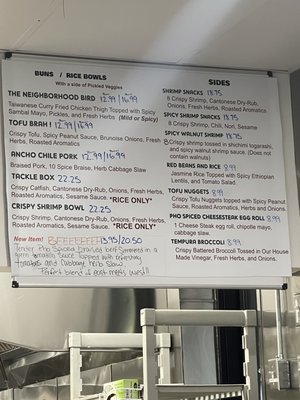 BUNS / RICE BOWLS
With a side of Pickled Veggies
THE NEIGHBORHOOD BIRD 12.99/16.99
Taiwanese Curry Fried Chicken Thigh Topped with Spicy
Sambal Mayo, Pickles, and Fresh Herbs (Mild or Spicy)
TOFU BRAH! 12.99/16.99
Crispy Tofu, Spicy Peanut Sauce, Brunoise Onions, Fresh
Herbs, Roasted Aromatics
ANCHO CHILE PORK 12.99/16.99
Braised Pork, 10 Spice Braise, Herb Cabbage Slaw
TACKLE BOX 22.25
Crispy Catfish, Cantonese Dry-Rub, Onions, Fresh Herbs,
Roasted Aromatics, Sesame Sauce. *RICE ONLY*
CRISPY SHRIMP BOWL 22.25
Crispy Shrimp, Cantonese Dry-Rub, Onions, Fresh Herbs,
Roasted Aromatics, Sesame Sauce. *RICE ONLY*
New Item! 13.95/20.50
Tender Pho Spiced braised beef Simmered in a
tomatillo Sauce Topped with refreshing
tomatoes and Cabbage herb Slaw
Perfect blend of east meets west!!
SIDES
SHRIMP SNACKS 18.75
8 Crispy Shrimp, Cantonese Dry-Rub,
Onions, Fresh Herbs, Roasted Aromatics
SPICY SHRIMP SNACKS 18.75
8 Crispy Shrimp, Chili, Nori, Sesame
SPICY WALNUT SHRIMP 18.75
8 Crispy shrimp tossed in shichimi togarashi,
and spicy walnut shrimp sauce. (Does not
contain walnuts)
RED BEANS AND RICE 9.99
Jasmine Rice Topped with Spicy Ethiopian
Lentils, and Tomato Salad
TOFU NUGGETS 9.99
Crispy Tofu Nuggets topped with Spicy Peanut
Sauce, Roasted Aromatics, Herbs and Onions
PHO SPICED CHEESESTEAK EGG ROLL 9.99
1 Cheese Steak egg roll, chipotle mayo,
cabbage slaw.
TEMPURA BROCCOLI 8.99
Crispy Battered Broccoli Tossed in Our House
Made Vinegar, Fresh Herbs, and Onions.